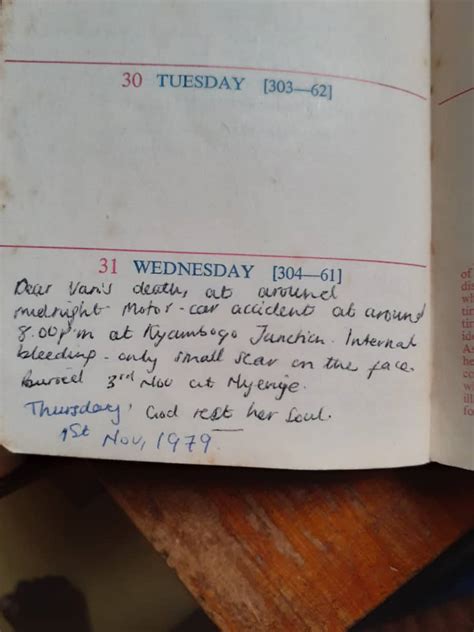 30 TUESDAY [303—62]
31 WEDNESDAY [304—61]
Dear Van's death, at around
midnight. Motor-car accident at around
8.00pm at Kyambogo Junction. Internal
bleeding - only small scar on the face.
Burried 3rd Nov at
Thursday, God rest her Soul.
1st Nov, 1979.